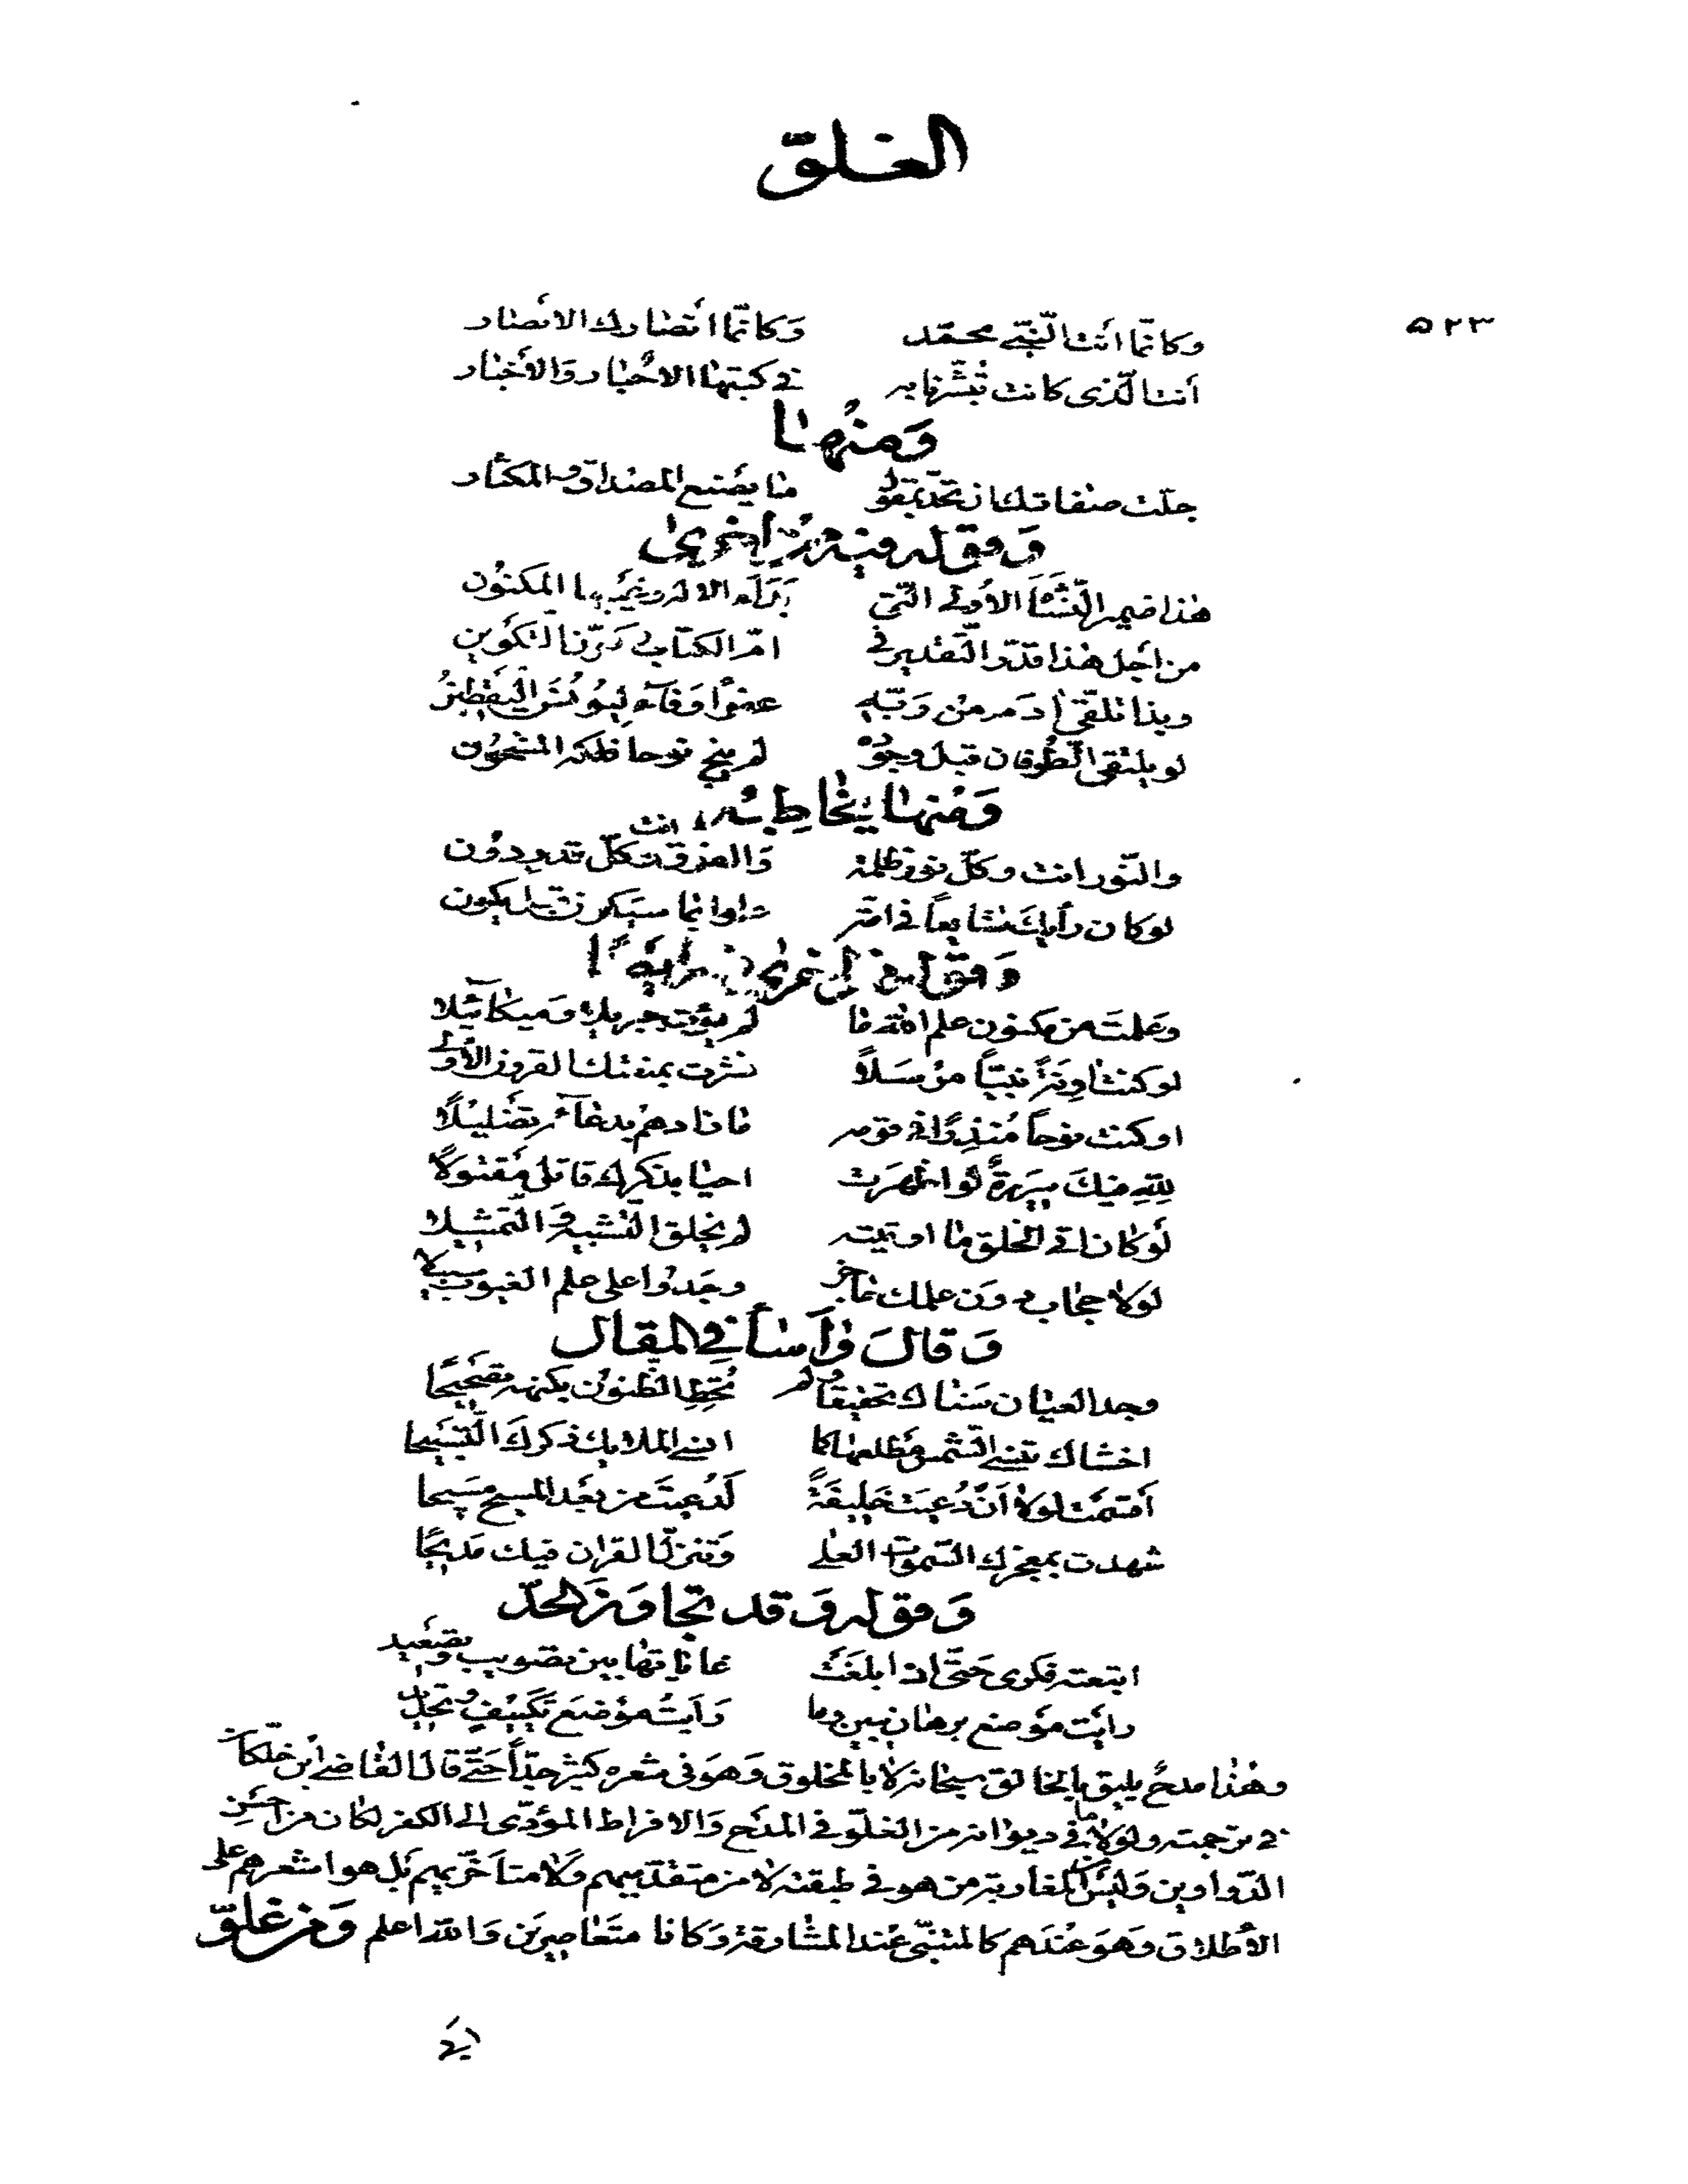 الغلوّ
٥٢٣
وكانّما انت النّبيّ محمّد وَكانّما انصارك الانصار
انت الّذى كانت تبشّرنا به في كتبها الاحبار وَالأخبار
وَمنها
جلّت صفاتك ان تحدّ بمقول ما يصنع المصداق والمكثار
وَقوله فيه من اخرى
هذا ضمير النّشأة الأولى التي بَدَأ الاله وغيبها المكنون
من اجل هذا قدّر التّقدير في امّ الكتاب وكوّن التكوين
وبذا تلقّى ادم من رَبّه عفوًا وَفاء ليونس اليقطين
لو يلتقى الطّوفان قبل وجوده لم ينج نوحا فلكه المشحون
وَمنها يخاطبه
والنّور انت وكلّ نور ظلمة وَالفوق انت وكلّ قدر دون
لو كان رأيك شايعاً في امّة علموا بما سيكون قبل يكون
وَقوله من اخرى فيه ايضًا
وعَلمتَ من مكنون علم الله ما لم يؤت جبريلا وَميكائيلا
لو كنت اونة نبيّاً مرسَلاً نشرت بمبعثك القرون الأولى
او كنت نوحاً مُنذِرًا في قومه ما زادهم بدعائه تضليلًا
لِلّهِ فيكَ سَريرةٌ لو اظهرَت احيا بذكرك قاتل مقتولًا
لَوكان اتى الخلق ما اوتيته لم يخلق التشبيه وَالتمثيلا
لولا حجاب دون علمك حاجز وجَدوا على علم الغيوب سبيلا
وَقالَ وأساء في المقال
وجد العيان سَناك تحقيقا ولم تُحِطِ الظّنون بكنهه تصحيحًا
اخشاك تنسى الشّمس مطلعها كما انسى الملايك ذكرك التّسبيحا
أقسمت لولا أن دُعيتَ خليفةً لَدُعيتَ من بعد المسيح مسيحا
شهدت بمعجزك السّموات العلى وَتنزّل القران فيك مَديحًا
وَقوله وَقد تجاوزَ الحدّ
ابتعته فكرى حَتّى اذا بلغَتْ غاياتها بين تصويب وتصعيد
رايْت موضع برهان يبين وما رَأيت موْضع تكييف وتحديد
وهٰذا مدحٌ يليق بالخالق سبحانه لا بالمخلوق وَهوَ فى شعره كثير جدّاً حَتّى قال القاضى ابن خلّكان
في ترجمته ولولا ما في ديوانه من الغلوّ في المدْح وَالافراط المؤدّى الى الكفر لكان من احسَنِ
الدّواوين وَليْسَ للمغاربة من هو في طبقته لا من متقدّميهم وَلا متأخّريهم بَل هو اشعرهم على
الأطلاق وَهوَ عندَهم كالمتنبّى عند المشارقة وَكانا متعاصرَين وَالله اعلم وَمن غلوّ
ابي